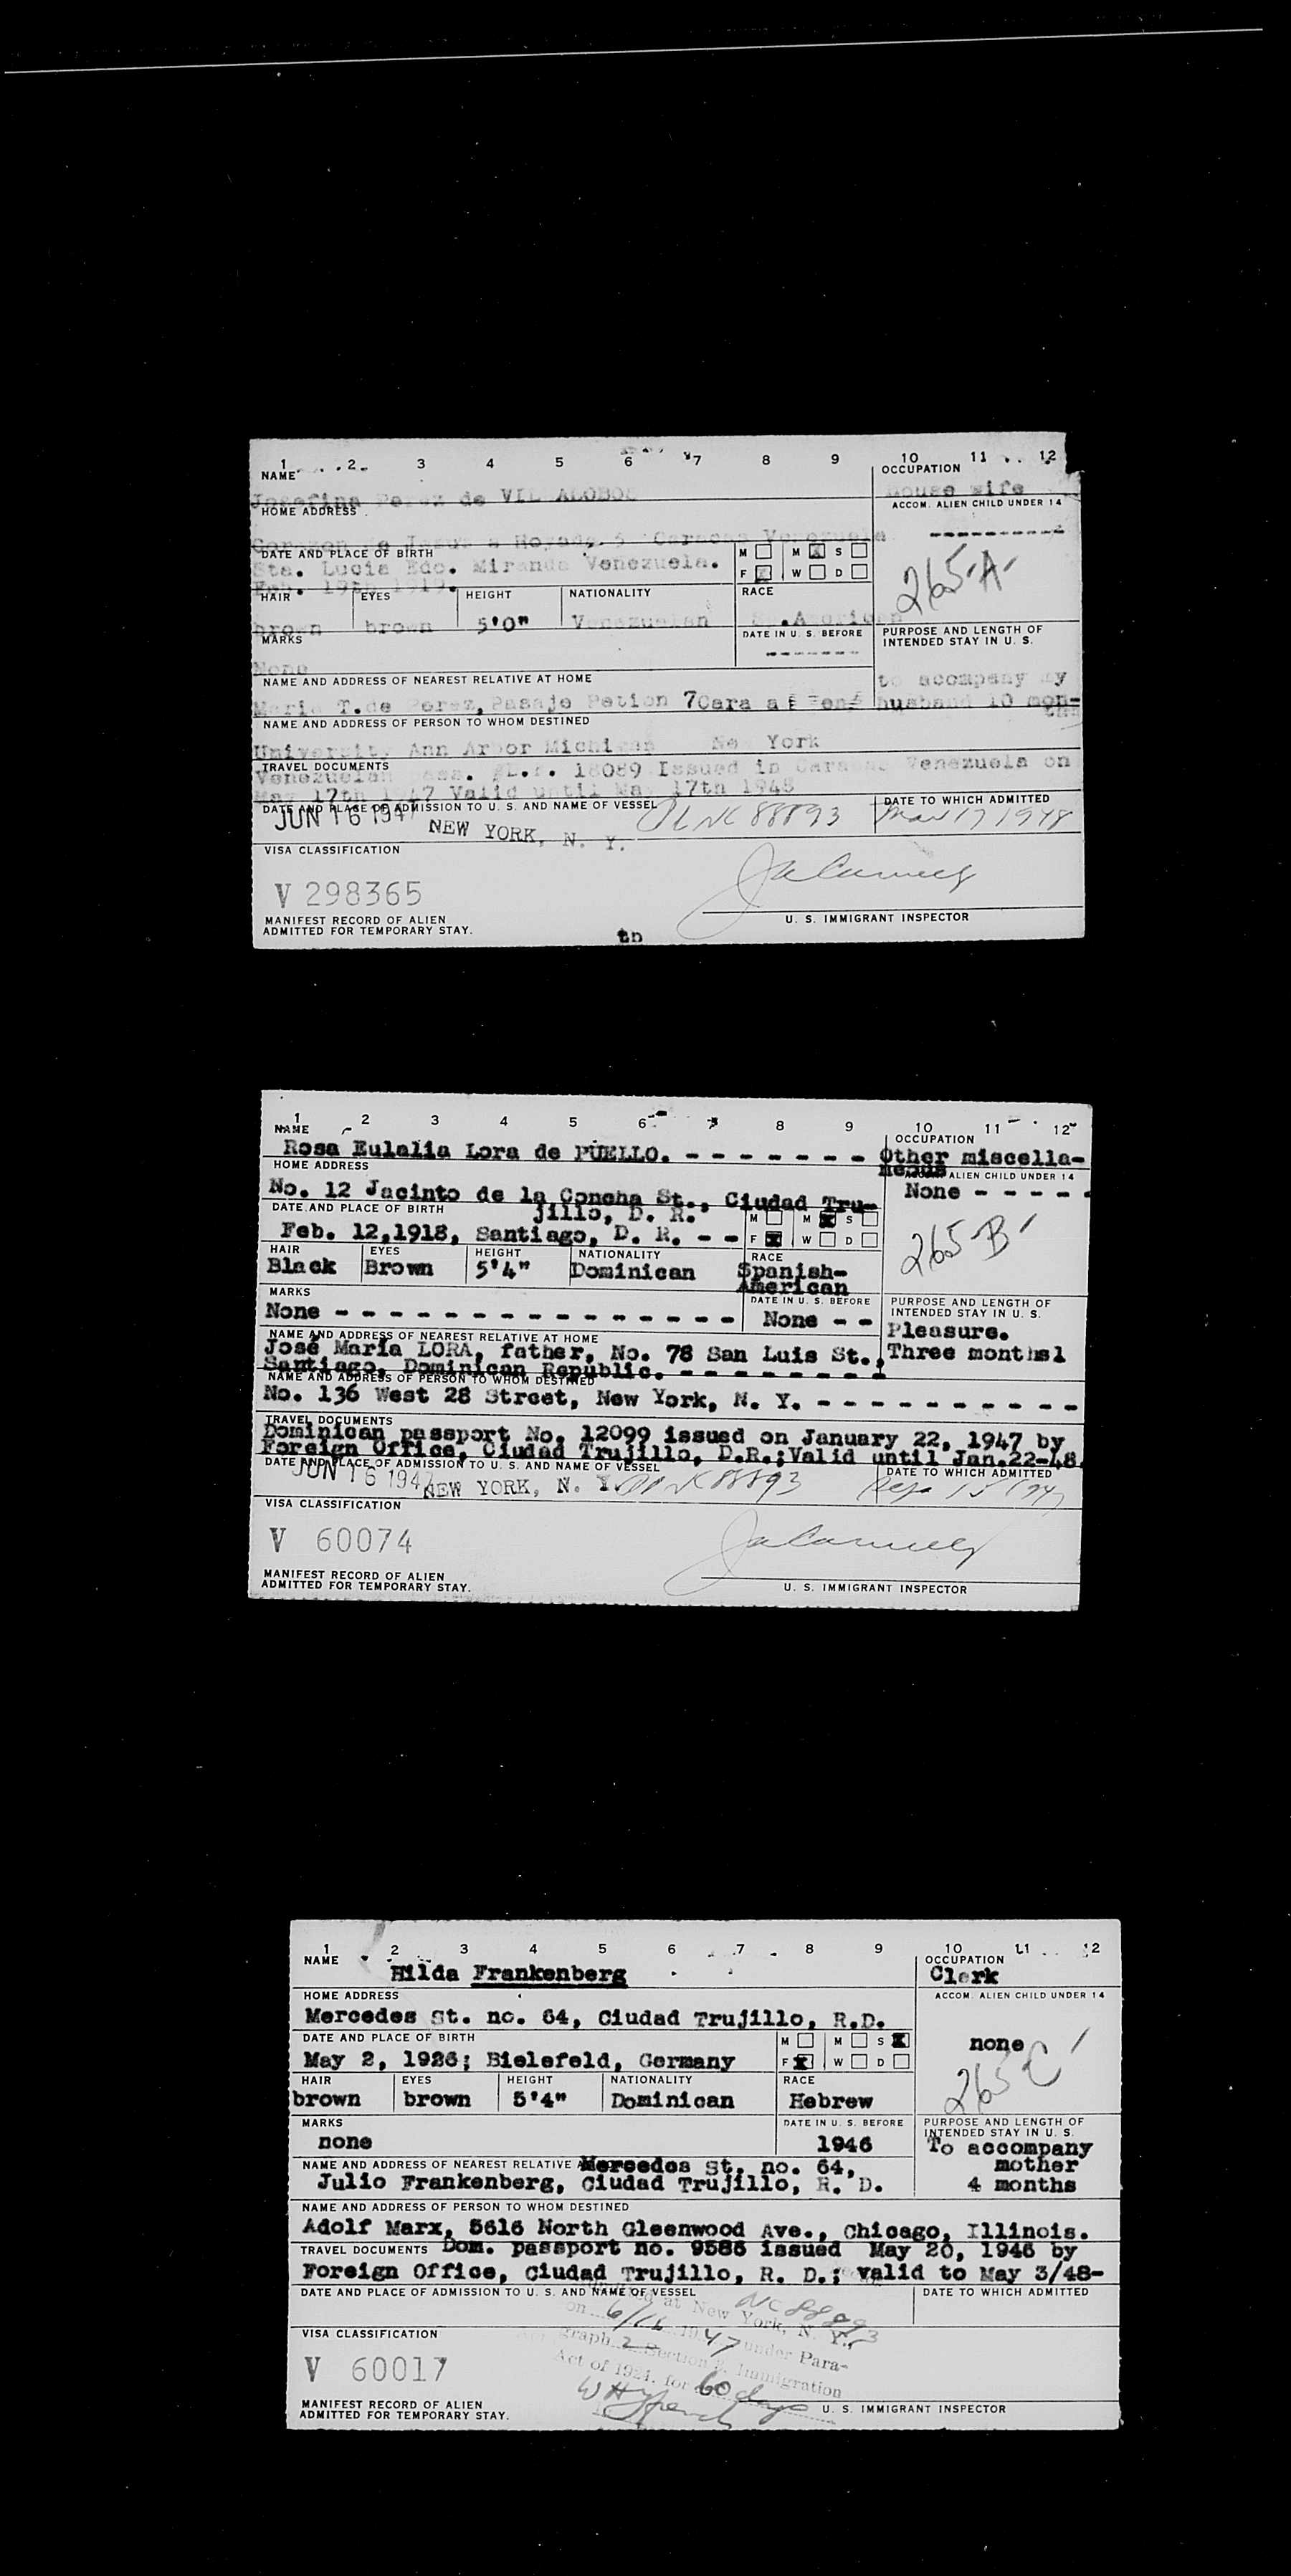 1 2 3 4 5 6 7 8 9 10 11 12
NAME
OCCUPATION
Josefina Perez de VILLALOBOS
house wife
HOME ADDRESS
ACCOM. ALIEN CHILD UNDER 14
Corazon de Jesus a Caracas Venezuela
----------
DATE AND PLACE OF BIRTH
M M S
Sta. Lucia Edo. Miranda Venezuela.
F W D
Feb. 19th 1919.
265-A-
HAIR EYES HEIGHT NATIONALITY RACE
brown brown 5'0" Venezuelan .American
MARKS
DATE IN U. S. BEFORE
PURPOSE AND LENGTH OF
INTENDED STAY IN U. S.
None
-------
NAME AND ADDRESS OF NEAREST RELATIVE AT HOME
to acompany my
Maria T.de Perez, Pasaje Petion 7 husband 10 mon-
ths
NAME AND ADDRESS OF PERSON TO WHOM DESTINED
University Ann Arbor Michigan New York
TRAVEL DOCUMENTS
Venezuelan pass. 18089 Issued in Caracas Venezuela on
May 17th 1947 Valid until May 17th 1948
DATE AND PLACE OF ADMISSION TO U. S. AND NAME OF VESSEL
DATE TO WHICH ADMITTED
JUN 16 1947 NEW YORK, N. Y. NC 88893 Mar 17 1948
VISA CLASSIFICATION
V 298365
MANIFEST RECORD OF ALIEN
ADMITTED FOR TEMPORARY STAY.
U. S. IMMIGRANT INSPECTOR
tn
1 2 3 4 5 6 7 8 9 10 11 12
NAME
OCCUPATION
Rosa Eulalia Lora de PUELLO. - - - - - - - Other miscella-
neous
HOME ADDRESS
ALIEN CHILD UNDER 14
No. 12 Jacinto de la Concha St., Ciudad Tru-
None - - - - -
DATE AND PLACE OF BIRTH
jillo, D. R.
M M S
Feb. 12,1918, Santiago, D. R. - -
F W D
265-B-
HAIR EYES HEIGHT NATIONALITY RACE
Black Brown 5'4" Dominican Spanish-
American
MARKS
DATE IN U. S. BEFORE
PURPOSE AND LENGTH OF
INTENDED STAY IN U. S.
None - - - - - - - - - - - - - - - None - -
Pleasure.
NAME AND ADDRESS OF NEAREST RELATIVE AT HOME
José María LORA, father, No. 78 San Luis St., Three months1
Santiago, Dominican Republic. - - - - - - - - -
NAME AND ADDRESS OF PERSON TO WHOM DESTINED
No. 136 West 28 Street, New York, N. Y. - - - - - - - - - -
TRAVEL DOCUMENTS
Dominican passport No. 12099 issued on January 22, 1947 by
Foreign Office, Ciudad Trujillo, D.R.;Valid until Jan.22-48.
DATE AND PLACE OF ADMISSION TO U. S. AND NAME OF VESSEL
DATE TO WHICH ADMITTED
JUN 16 1947 NEW YORK, N. Y. NC 88893 Sep 15 1947
VISA CLASSIFICATION
V 60074
MANIFEST RECORD OF ALIEN
ADMITTED FOR TEMPORARY STAY.
U. S. IMMIGRANT INSPECTOR
1 2 3 4 5 6 7 8 9 10 11 12
NAME
OCCUPATION
Hilda Frankenberg
Clerk
HOME ADDRESS
ACCOM. ALIEN CHILD UNDER 14
Mercedes St. no. 64, Ciudad Trujillo, R.D.
DATE AND PLACE OF BIRTH
M M S
none
May 2, 1926; Bielefeld, Germany
F W D
265 C
HAIR EYES HEIGHT NATIONALITY RACE
brown brown 5'4" Dominican Hebrew
MARKS
DATE IN U. S. BEFORE
PURPOSE AND LENGTH OF
INTENDED STAY IN U. S.
none
1946
To accompany
mother
4 months
NAME AND ADDRESS OF NEAREST RELATIVE Mercedes St. no. 64,
Julio Frankenberg, Ciudad Trujillo, R. D.
NAME AND ADDRESS OF PERSON TO WHOM DESTINED
Adolf Marx, 5616 North Gleenwood Ave., Chicago, Illinois.
TRAVEL DOCUMENTS Dom. passport no. 9586 issued May 20, 1946 by
Foreign Office, Ciudad Trujillo, R. D.; valid to May 3/48-
DATE AND PLACE OF ADMISSION TO U. S. AND NAME OF VESSEL
DATE TO WHICH ADMITTED
at New York, N. Y., NC 88893
on 6/16 1947 under Para-
graph 2 Section 3, Immigration
Act of 1924, for 60 days
VISA CLASSIFICATION
V 60017
MANIFEST RECORD OF ALIEN
ADMITTED FOR TEMPORARY STAY.
U. S. IMMIGRANT INSPECTOR